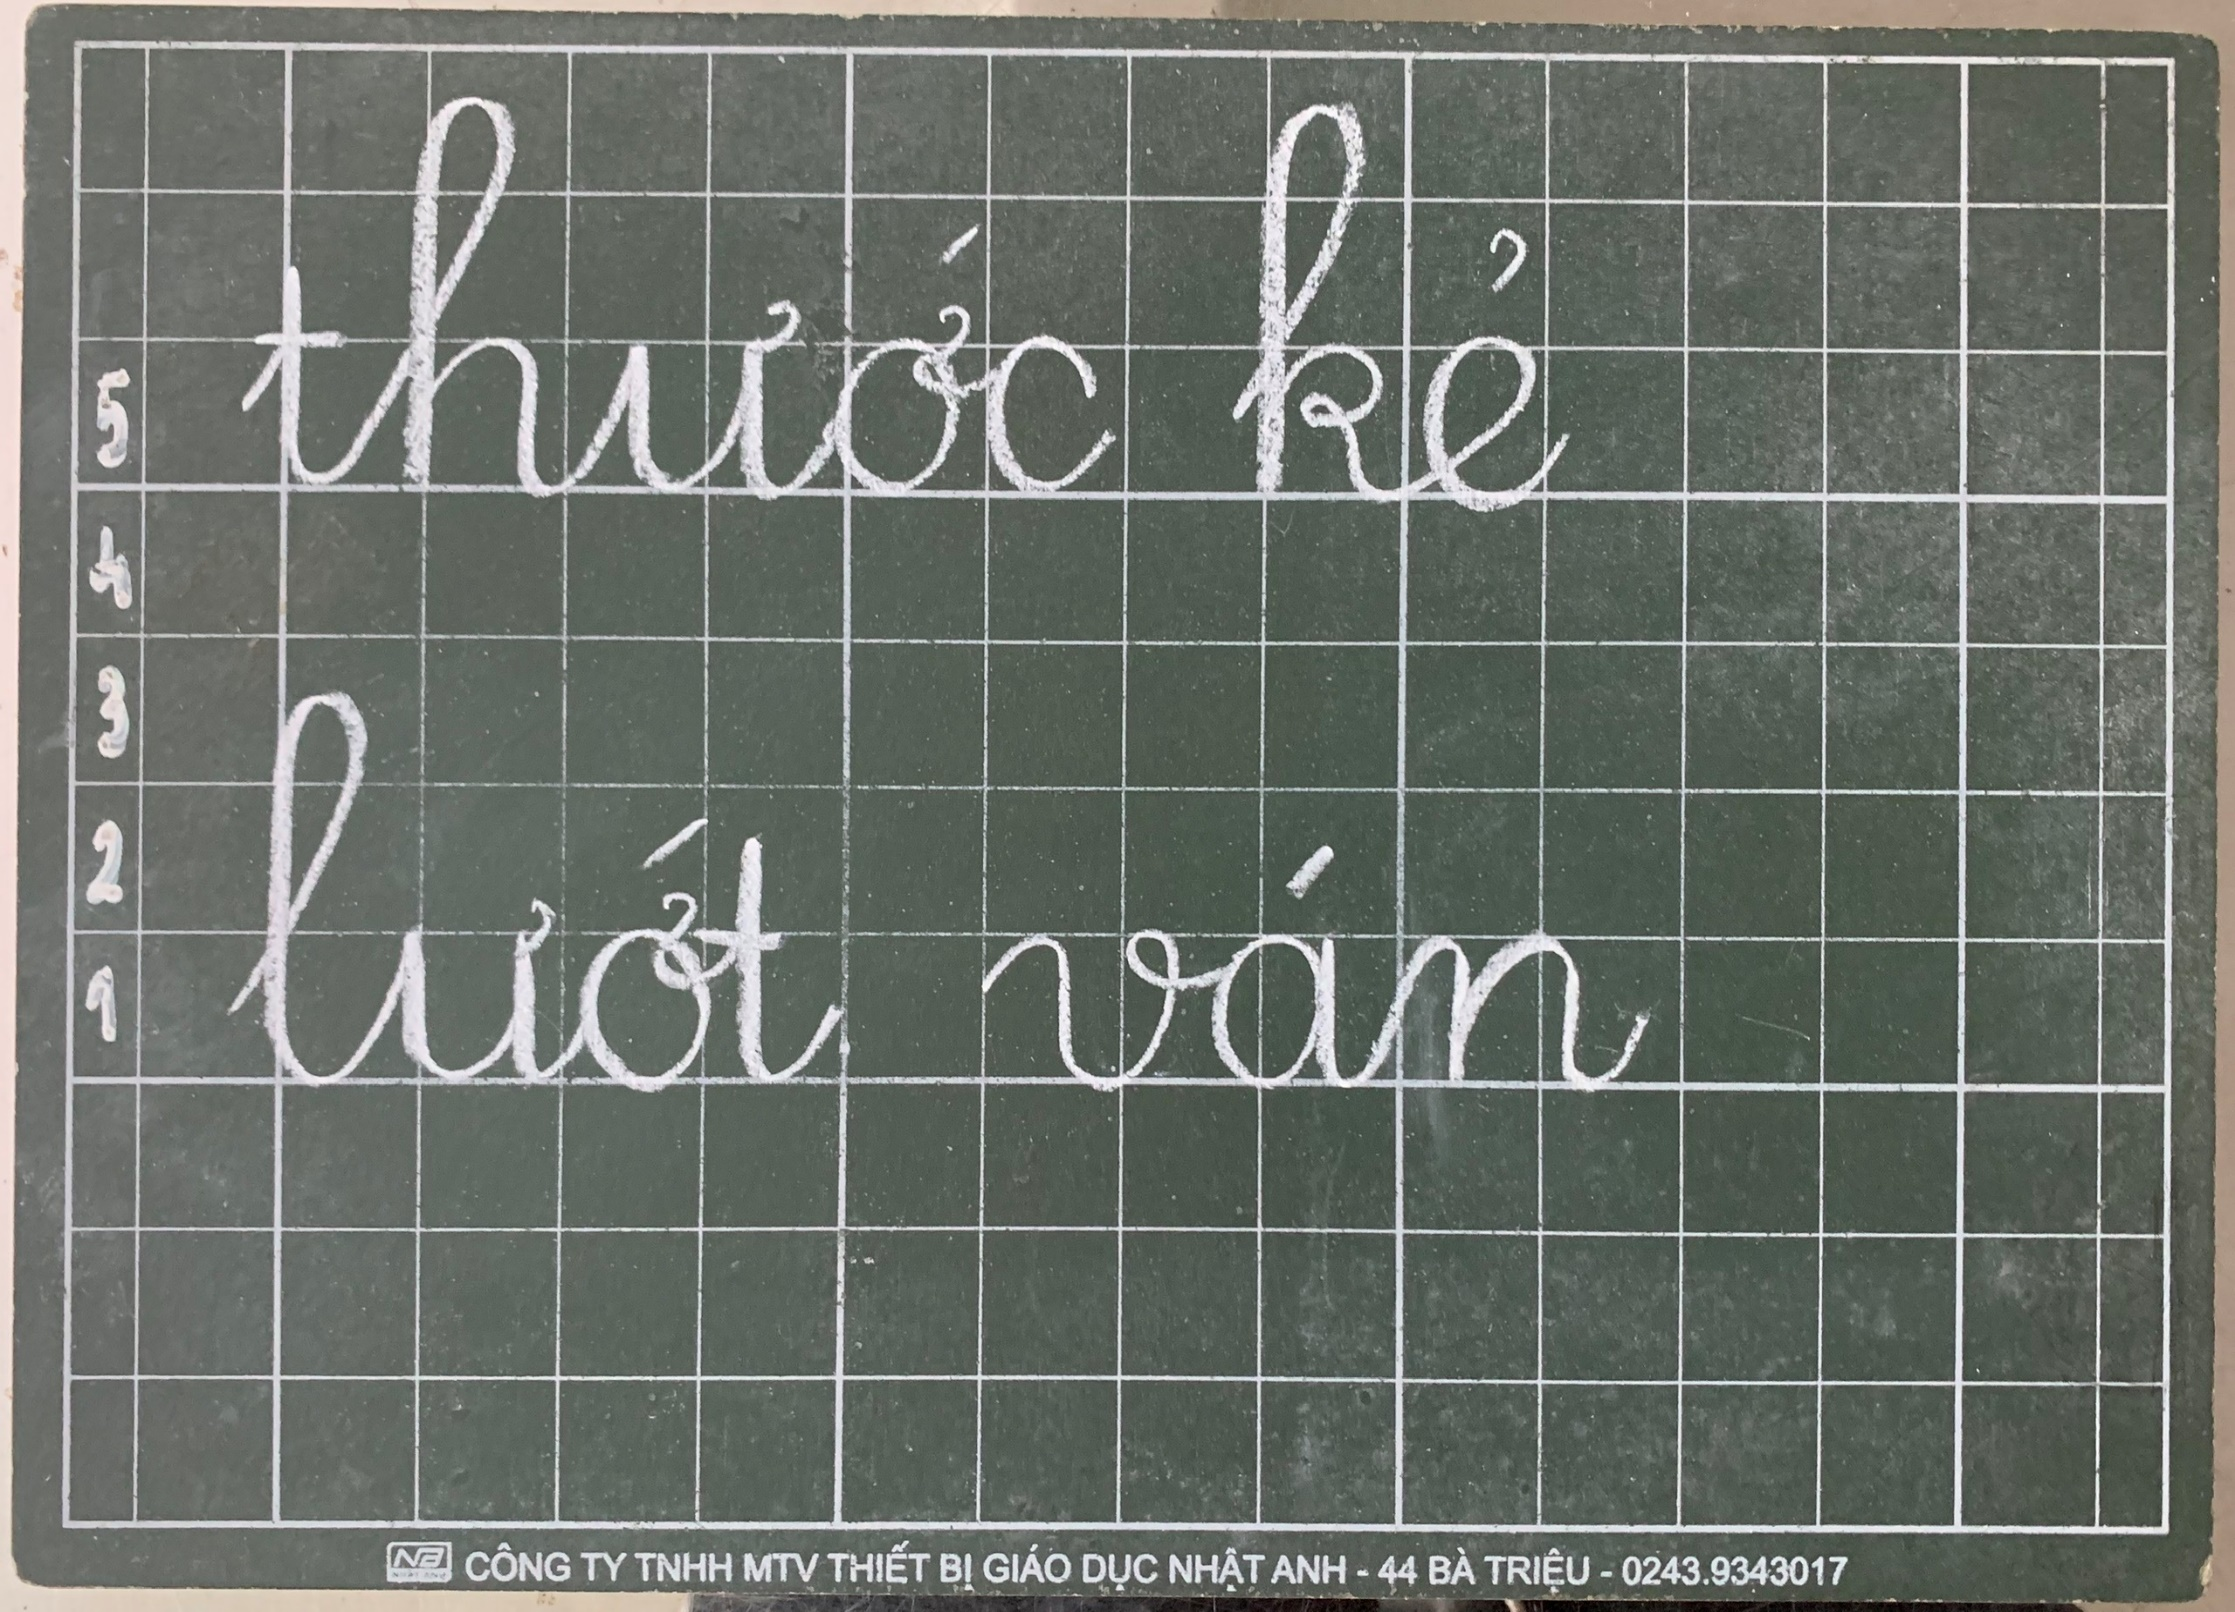 thước kẻ
5
4
3
lướt ván
2
1
CÔNG TY TNHH MTV THIẾT BỊ GIÁO DỤC NHẬT ANH - 44 BÀ TRIỆU - 0243.9343017